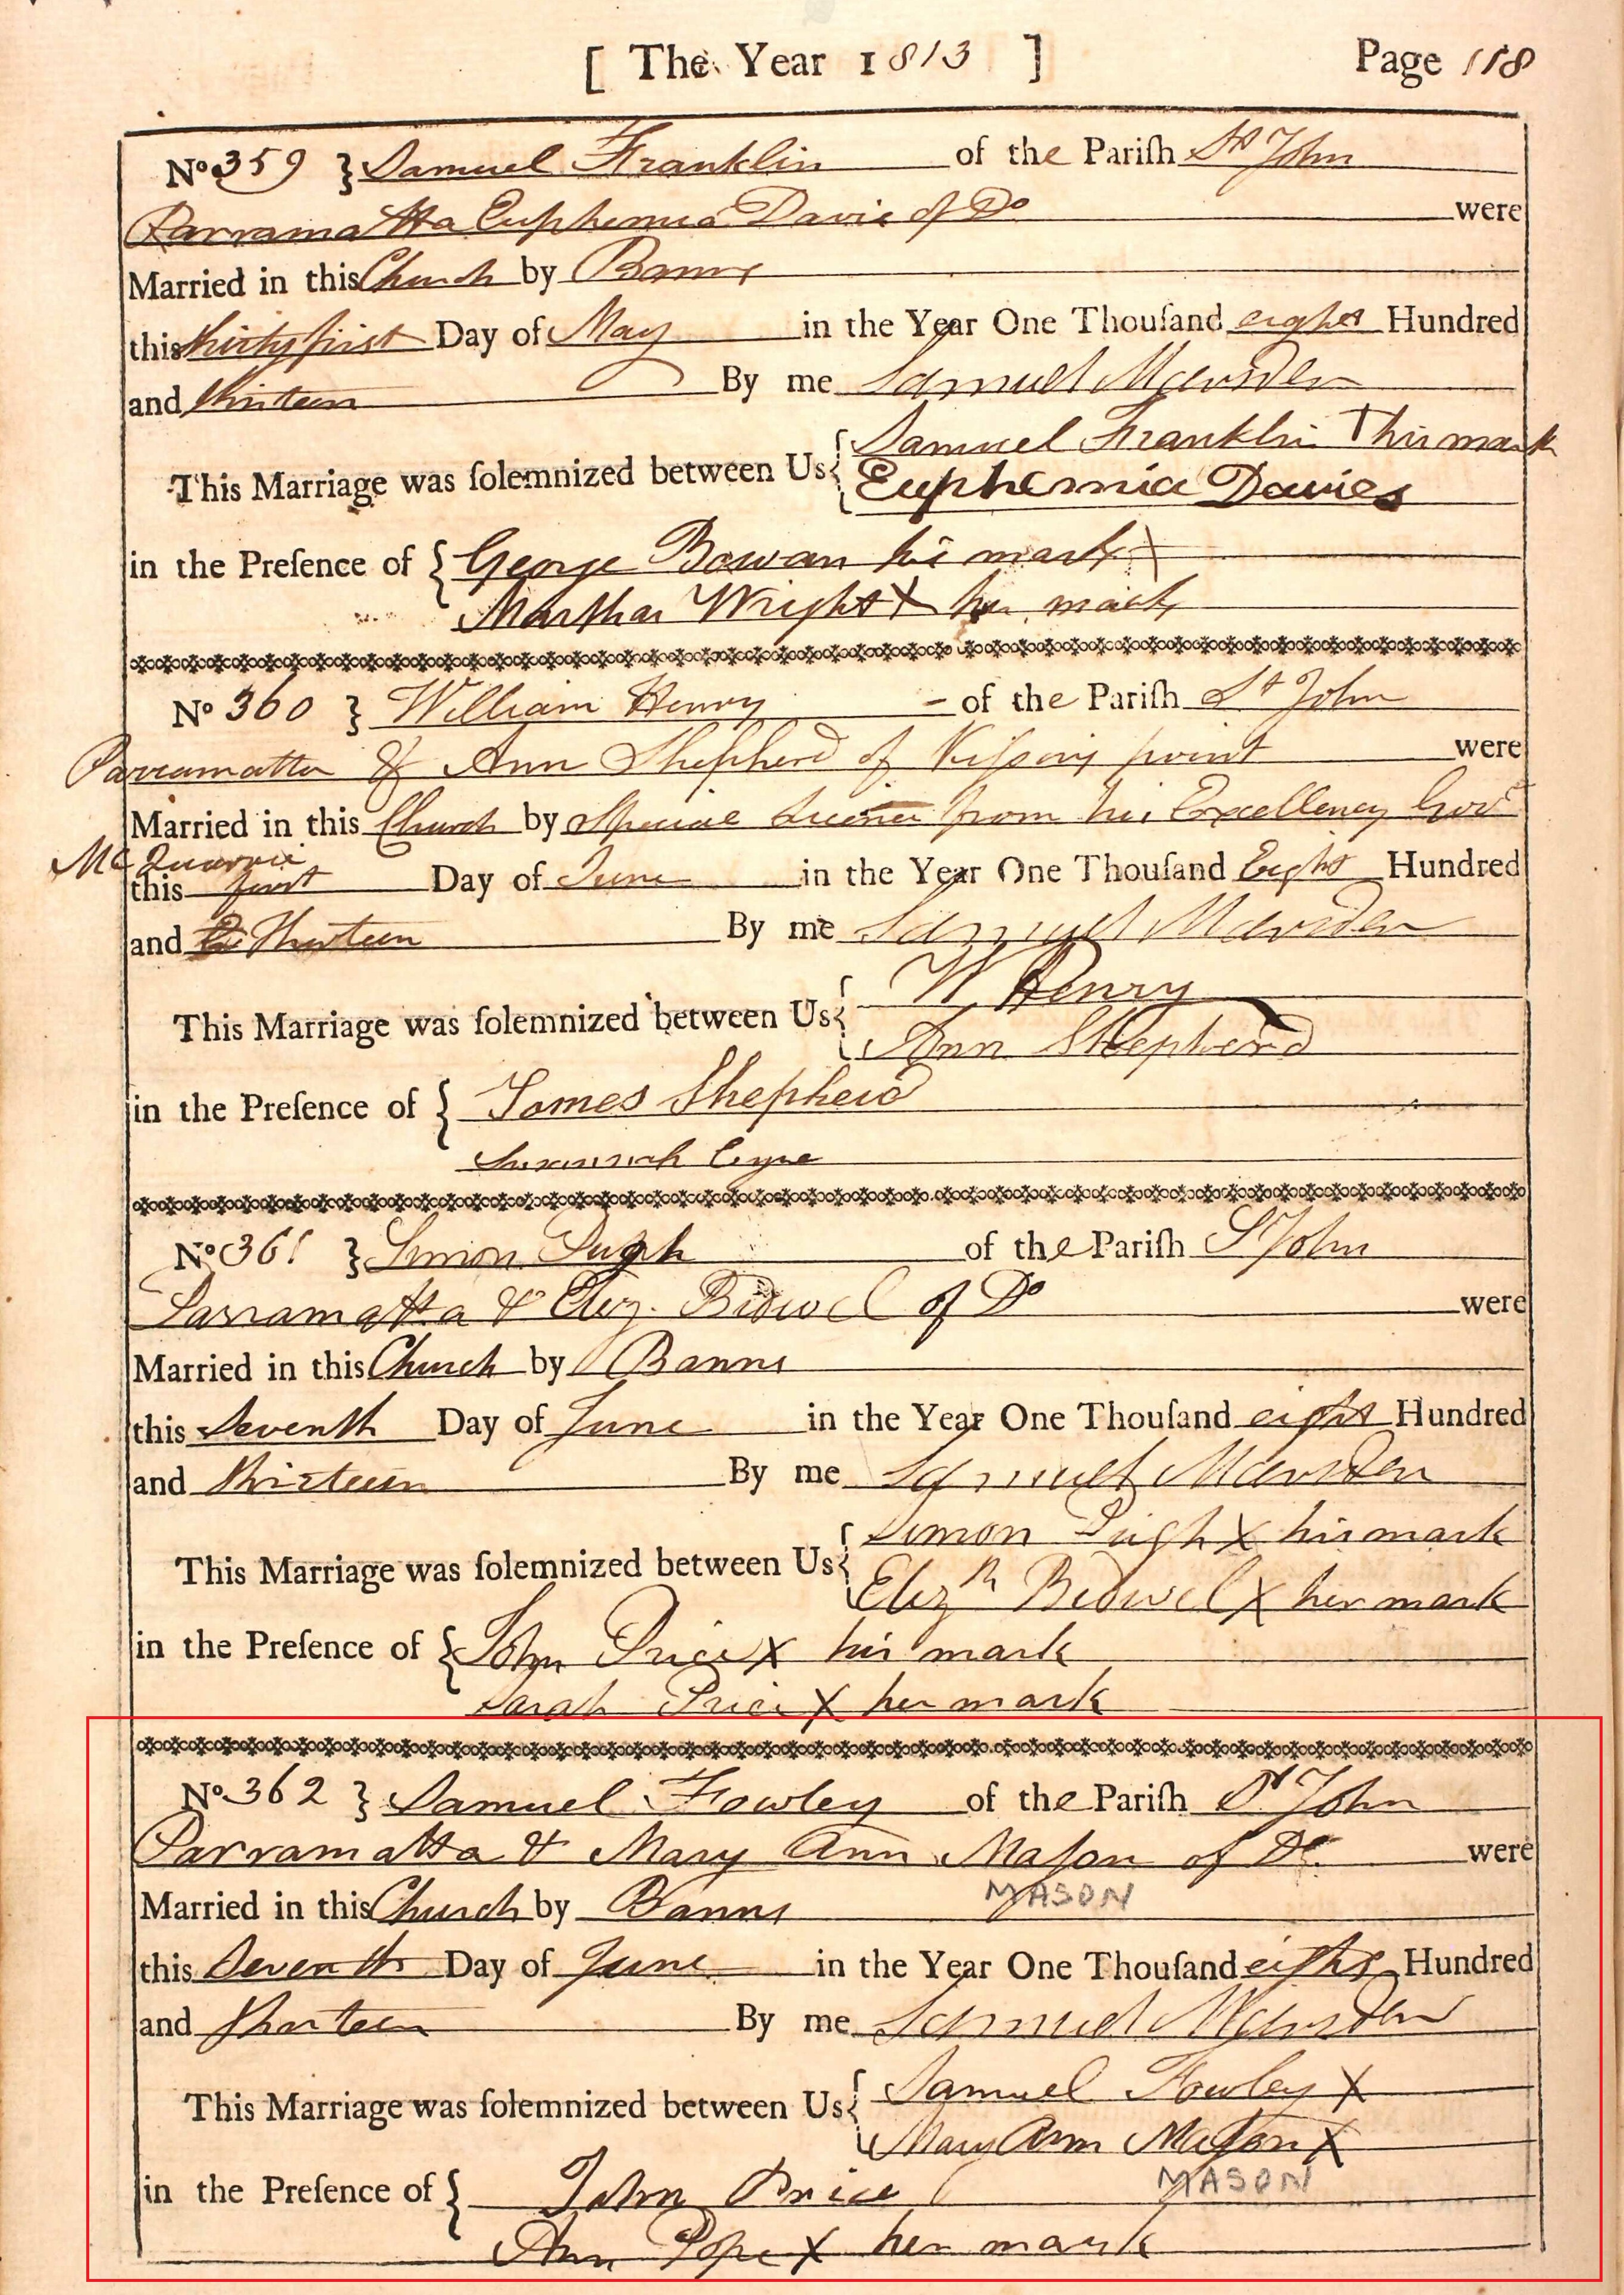 [ The Year 1813 ] Page 118
No 359 } Samuel Franklin of the Pariſh St John
Parramatta Euphemia Davis of Do were
Married in this Church by Banns
this thirty first Day of May in the Year One Thouſand eight Hundred
and thirteen By me Samuel Marsden
This Marriage was ſolemnized between Us { Samuel Franklin his mark
Euphemia Davies
in the Preſence of { George Bowan his mark X
Martha Wright X her mark
No 360 } William Henry - of the Pariſh St John
Parramatta & Ann Shepherd of Kiſsing point were
Married in this Church by Special Licence from his Excellency Govr
McQuarrie
this first Day of June in the Year One Thouſand Eight Hundred
and Thirteen By me Samuel Marsden
This Marriage was ſolemnized between Us { W Henry
Ann Shepherd
in the Preſence of { James Shepherd
Susannah
No 361 } Simon Pugh of the Pariſh St John
Parramatta & Eliz. Bidwel of Do were
Married in this Church by Banns
this Seventh Day of June in the Year One Thouſand eight Hundred
and thirteen By me Samuel Marsden
This Marriage was ſolemnized between Us { Simon Pugh X his mark
Elizh Bidwel X her mark
in the Preſence of { John Price X his mark
Sarah Price X her mark
No 362 } Samuel Fowley of the Pariſh St John
Parramatta & Mary Ann Maſon of Do. were
MASON
Married in this Church by Banns
this Seventh Day of June in the Year One Thouſand eight Hundred
and thirteen By me Samuel Marsden
This Marriage was ſolemnized between Us { Samuel Fowley X
Mary Ann Maſon X
MASON
in the Preſence of { John Price
Ann Pope X her mark